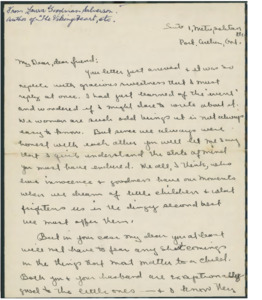 From Laura Goodman Salverson
Author of The Viking Heart, etc.
Suite 1, Metropolitan
My Dear, dear friend:
Your letter just arrived & it was so
replete with gracious sweetness that I must
reply at once. I had just learned of the "event"
and wondered if I might dare to write about it.
We women are such odd beings it is not always
easy to know. But since we always were
honest with each other you will let me say
that I quite understand the state of mind
you must have endured. We all, I think, who
love innocence & goodness have our moments
when we dream of little children & what
frightens us is the dingy second best
we must offer them.
But in your case my dear you at least
will not have to fear any shortcomings
in the things that most matter to a child.
Both you & your husband are exceptionally
good to the little ones — & I know they